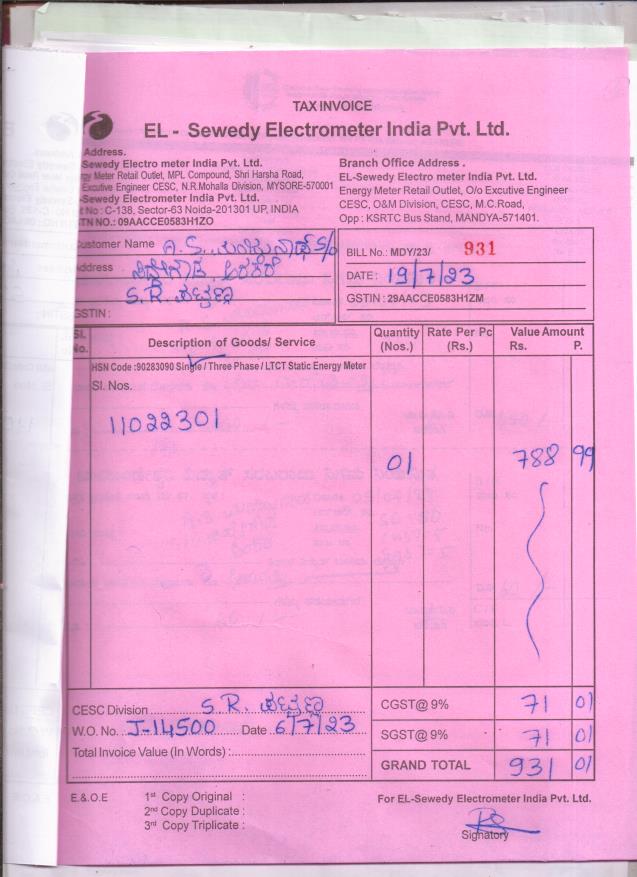 TAX INVOICE
EL - Sewedy Electrometer India Pvt. Ltd.
Address.
Sewedy Electro meter India Pvt. Ltd.
Meter Retail Outlet, MPL Compound, Shri Harsha Road,
Excutive Engineer CESC, N.R.Mohalla Division, MYSORE-570001
-Sewedy Electrometer India Pvt. Ltd.
No : C-138, Sector-63 Noida-201301 UP, INDIA
NO.: 09AACCE0583H1ZO
Branch Office Address .
EL-Sewedy Electro meter India Pvt. Ltd.
Energy Meter Retail Outlet, O/o Excutive Engineer
CESC, O&M Division, CESC, M.C.Road,
Opp : KSRTC Bus Stand, MANDYA-571401.
Customer Name A.S. ಮಂಜುನಾಥ್ S/o
Address
S.R. ಪಟ್ಟಣ
GSTIN :
BILL No.: MDY/23/ 931
DATE : 19/7/23
GSTIN : 29AACCE0583H1ZM
Sl. No. Description of Goods/ Service Quantity (Nos.) Rate Per Pc (Rs.) Value Amount Rs. P.
HSN Code :90283090 Single / Three Phase / LTCT Static Energy Meter
Sl. Nos.
11022301
01 788 99
CESC Division S.R. ಪಟ್ಟಣ
W.O. No. J-14500 Date 6/7/23
Total Invoice Value (In Words) :
CGST@ 9% 71 01
SGST@ 9% 71 01
GRAND TOTAL 931 01
E.& O.E
1st Copy Original :
2nd Copy Duplicate :
3rd Copy Triplicate :
For EL-Sewedy Electrometer India Pvt. Ltd.
Signatory